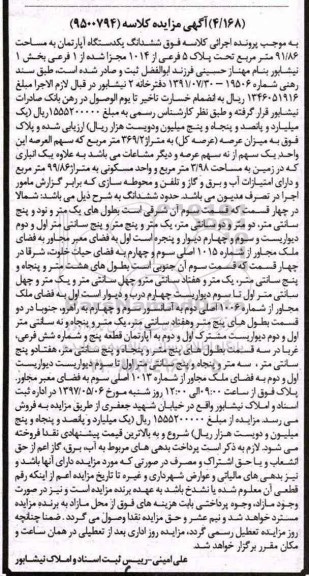 (۴/۱۶۸) آگهی مزایده کلاسه (۹۵۰۰۷۹۴)
به موجب پرونده اجرائی کلاسه فوق ششدانگ یکدستگاه آپارتمان به مساحت
۹۱/۸۶ متر مربع تحت پلاک ۵ فرعی از ۱۰۱۴ مجزا شده از ۱ فرعی بخش ۱
نیشابور بنام مهناز حسینی فرزند ابوالفضل ثبت و صادر شده است، طبق سند
رهنی شماره ۱۹۵۰۶ – ۱۳۹۱/۰۷/۳۰ دفترخانه ۲ نیشابور در قبال لازم الاجرا مبلغ
۱۳۴۶۰۵۱۹۱۶ ریال به انضمام خسارت تاخیر تا یوم الوصول در رهن بانک صادرات
نیشابور قرار گرفته و طبق نظر کارشناس رسمی به مبلغ ۱۵۵۵۲۰۰۰۰۰ ریال (یک
میلیارد و پانصد و پنجاه و پنج میلیون ودویست هزار ریال) ارزیابی شده و پلاک
فوق به میزان عرصه (عرصه کل) به متراژ ۳۶۹/۲ متر مربع که سهم العرصه این
واحد یک سهم از نه سهم عرصه و دیگر مشاعات می باشد به علاوه یک انباری
که در زمین به مساحت ۳/۹۸ متر مربع و واحد مسکونی به متراژ ۹۹/۸۶ متر مربع
و دارای امتیازات آب و برق و گاز و تلفن و محوطه سازی که برابر گزارش مامور
اجرا در تصرف مدیون می باشد. حدود ششدانگ به شرح ذیل می باشد: شمالا
در چهار قسمت که قسمت سوم آن شرقی است بطول های یک متر و نود و پنج
سانتی متر، دو متر و دو سانتی متر، یک متر و پنج متر و پنج سانتی متر اول و دوم
دیواریست و سوم و چهارم دیوار و پنجره است اول به فضای معبر مجاور به فضای
ملک مجاور از شماره ۱۰۱۵ اصلی سوم و چهارم به فضای حیات خلوت، شرقا در
چهار قسمت که قسمت سوم آن جنوبی است بطول های هشت متر و پنجاه و
پنج سانتی متر، یک متر و هفتاد سانتی مترو چهل سانتی متر و یک متر و چهل
سانتی متر اول تا سوم دیواریست چهارم درب و دیوار است اول به فضای ملک
مجاور از شماره ۱۰۰۶ اصلی دوم به آسانسور سوم و چهارم به راهرو، جنوبا در دو
قسمت بطول های پنج متر وهفتاد سانتی متر، یک متر و پنجاه و نه سانتی متر
اول و دوم دیواریست مشترک اول و دوم به آپارتمان قطعه پنج و شماره شش فرعی،
غربا در سه قسمت بطول های پنج متر و پنجاه و پنج سانتی متر، هفتادو پنج
سانتی متر ، سه متر و پنجاه و پنج سانتی متر اول تا سوم دیواریست دیواریست
اول و دوم به فضای ملک مجاور از شماره ۱۰۱۳ اصلی سوم به فضای معبر مجاور.
پلاک فوق از ساعت ۰۹:۰۰ الی ۱۲:۰۰ روز شنبه مورخ ۱۳۹۷/۰۵/۰۶ در اداره ثبت
اسناد و املاک نیشابور واقع در خیابان شهید جعفری از طریق مزایده به فروش
می رسد. مزایده از مبلغ ۱۵۵۵۲۰۰۰۰۰ ریال (یک میلیارد و پانصد و پنجاه و پنج
میلیون و دویست هزار ریال) شروع و به بالاترین قیمت پیشنهادی نقدا فروخته
می شود. لازم به ذکر است پرداخت بدهی های مربوط به آب، برق، گاز اعم از حق
انشعاب و یا حق اشتراک و مصرف در صورتی که مورد مزایده دارای آنها باشد و
نیز بدهی های مالیاتی و عوارض شهرداری و غیره تا تاریخ مزایده اعم از اینکه رقم
قطعی آن معلوم شده یا نشده باشد به عهده برنده مزایده است و نیز در صورت
وجود مازاد، وجوه پرداختی بابت هزینه های فوق از محل مازاد به برنده مزایده
مسترد خواهد شد و نیم عشر و حق مزایده نقدا وصول می گردد . ضمنا چنانچه
روز مزایده تعطیل رسمی گردد، مزایده روز اداری بعد از تعطیلی در همان ساعت و
مکان مقرر برگزار خواهد شد.
علی امینی–رییس ثبت اسناد و املاک نیشابور